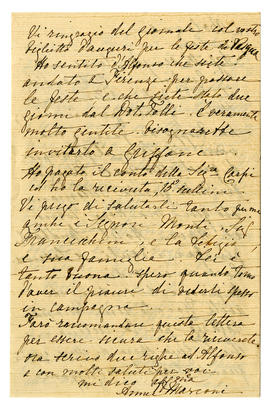 Vi ringrazio del giornale col vostro
biglietto d'auguri per le feste di Pasqua
Ho sentito d'Alfonso che siete
andato a Firenze per passare
le feste e che siete stato due
giorni dal Dott. Tolli. È veramente
molto gentile. Bisognarebbe
invitarlo a Griffone
Ho pagato il conto della Siga
ed ho la ricevuta
Vi prego di salutarli tanto
anche i Signori Monti, Sig
e la
e sua famiglia Lei è
tanto buona. Spero quando torno
d'aver il piacere di vederli spesso
in campagna
Farò raccomandare questa lettera
per essere sicura che la riceverete
ora scrivo due righe ad Alfonso
e con molti saluti per voi
mi dico
Annie Marconi